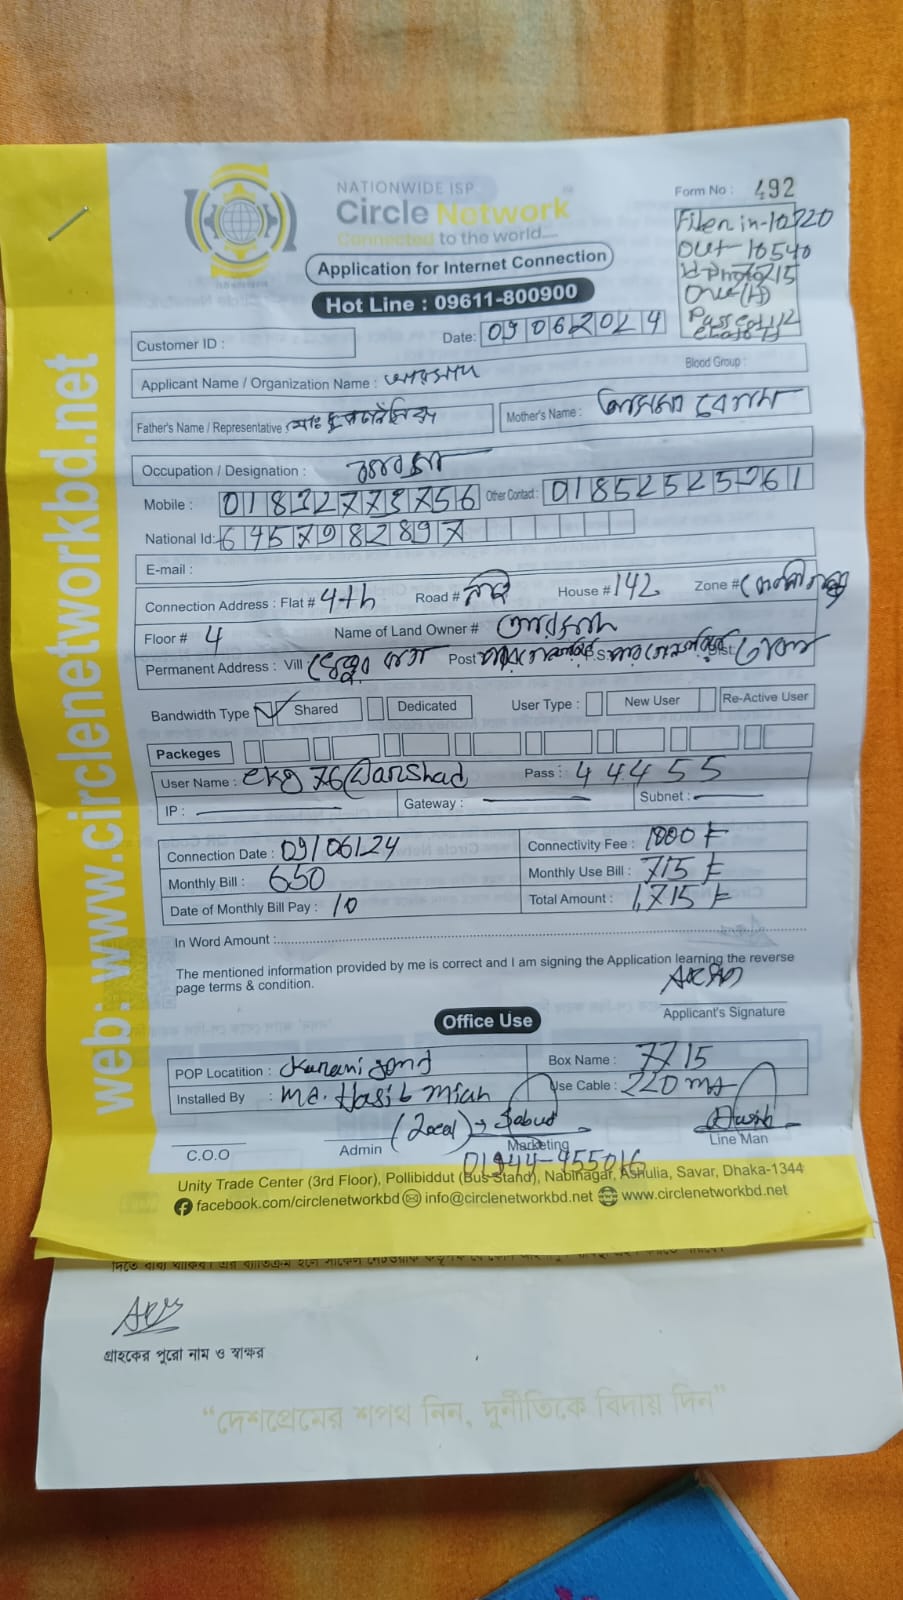 web: www.circlenetworkbd.net
NATIONWIDE ISP
Circle Network
Connected to the world....
Application for Internet Connection
Hot Line : 09611-800900
Form No : 492
Fiber in-10320
Out-10540
One(H)
Customer ID :
Date: 09062024
Applicant Name / Organization Name : আরশাদ
Blood Group :
Father's Name / Representative : মোঃ
Mother's Name : বেগম
Occupation / Designation :
Mobile : 01832773756 Other Contact : 01852525261
National Id: 6457982897
E-mail :
Connection Address : Flat # 4th Road # House # 142 Zone #
Floor # 4 Name of Land Owner # আরশাদ
Permanent Address : Vill Post P.S Dist:
Bandwidth Type Shared Dedicated User Type : New User Re-Active User
Packeges
User Name : ckg76@arshad Pass : 44455
IP : Gateway : Subnet :
Connection Date : 09/06/24 Connectivity Fee : 1000 ৳
Monthly Bill : 650 Monthly Use Bill : 715 ৳
Date of Monthly Bill Pay : 10 Total Amount : 1,715 ৳
In Word Amount :
The mentioned information provided by me is correct and I am signing the Application learning the reverse
page terms & condition.
Applicant's Signature
Office Use
POP Locatition : Kuranigond Box Name : 7715
Installed By : Md. Hasib Miah Use Cable : 220 m
(Local) → Sabud
C.O.O Admin Marketing Line Man
01944-955016
Unity Trade Center (3rd Floor), Pollibiddut (Bus Stand), Nabinagar, Ashulia, Savar, Dhaka-1344
facebook.com/circlenetworkbd info@circlenetworkbd.net www.circlenetworkbd.net
গ্রাহকের পুরো নাম ও স্বাক্ষর
“দেশপ্রেমের শপথ নিন, দুর্নীতিকে বিদায় দিন”